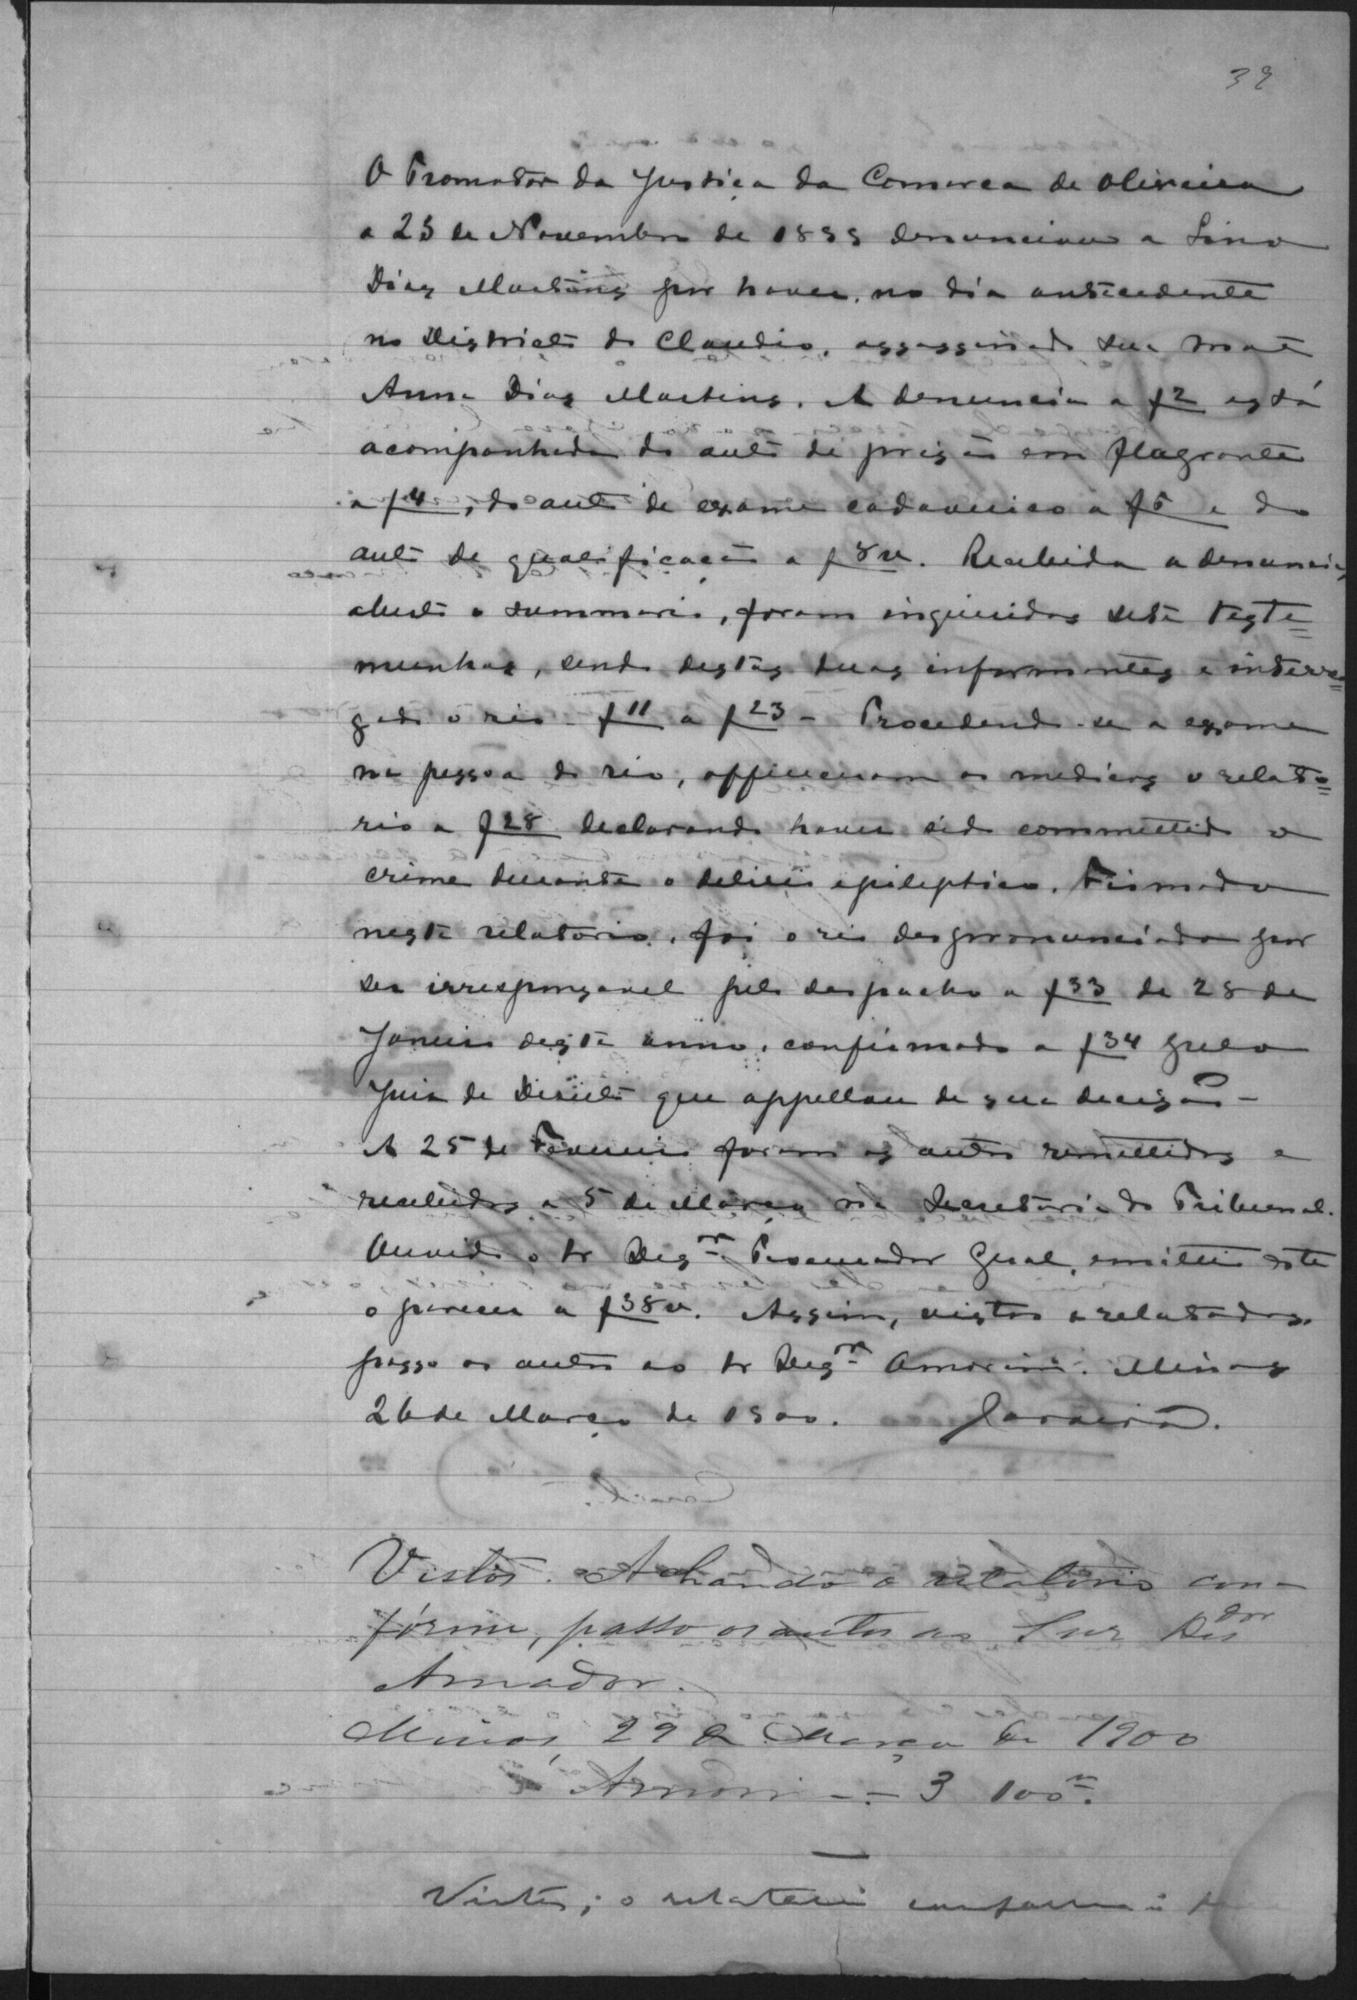 39
O Promotor da Justiça da Comarca de Oliveira
a 23 de Novembro de 1899 denunciou a Lino
Dias Martins por haver, no dia antecedente
no Districto do Claudio, assassinado sua
Anna Dias Martins. A denuncia a f2 está
acompanhada do auto de prisão em flagrante
a f4, do auto de exame cadaverico a f5 e do
auto de qualificação a f8v. Recebida a denuncia,
aberto o summario, foram inqueridas sete teste=
munhas, sendo destas duas informantes e interro=
gado o réo - f11 a f23 - Procedendo-se a exame
na pessoa do réo, offereceram os medicos o relato=
rio a f28 declarando haver sido committido o
crime durante o delirio epileptico. Firmado
neste relatorio, foi o réo despronunciado por
ser irresponsavel pelo despacho a f33 de 28 de
Janeiro deste anno, confirmado a f34 pelo
Juiz de Direito que appellou de sua decisão -
A 25 de Fevereiro foram os autos remettidos e
recebidos a 5 de Março na Secretaria do Tribunal.
Ouvido o Dr Desor Procurador Geral, emittiu este
o parecer a f38v. Assim, vistos e relatados,
passo os autos ao Dr Desor Amorim. Minas
26 de Março de 1900.
Vistos. Achando o relatorio con-
fórme, passo os autos ao Snr Desdor
Amador.
Minas, 29 de Março de 1900
Amorim
Vistos; o relatorio conforme